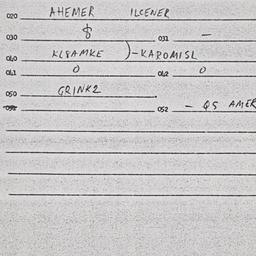 020 AHEMER ILCENER
030 8 031 -
040 KLSAMKE )-KAROMISL
041 0 042 0
050 GRINK2
052 - QS AMER